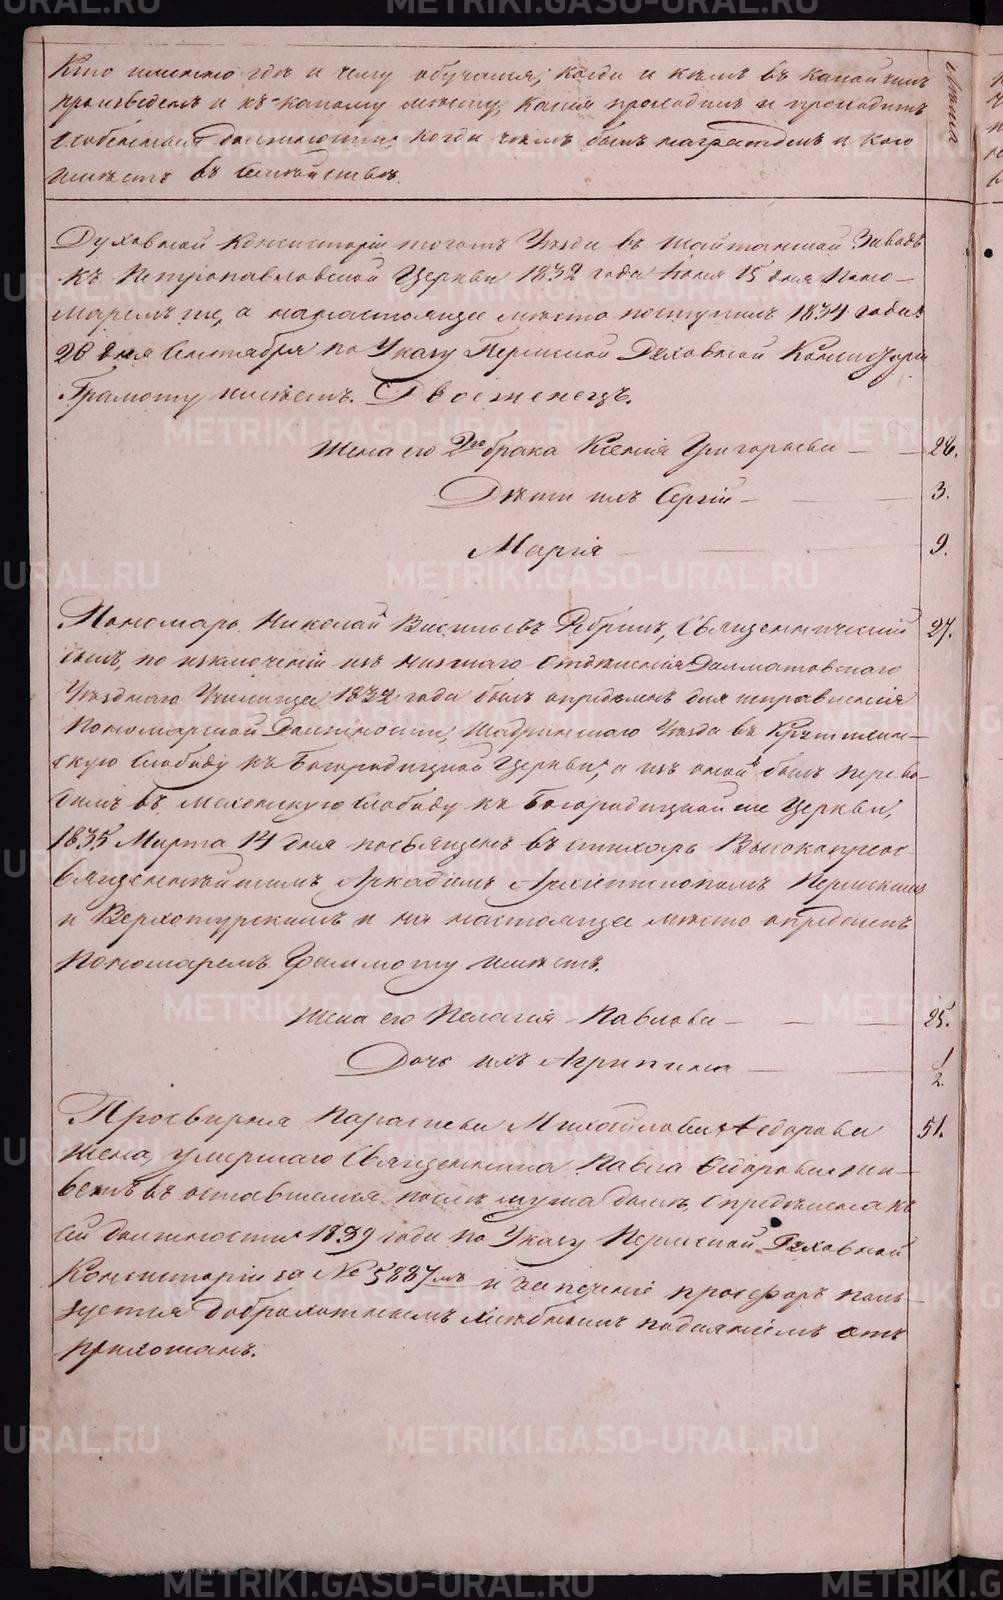 Кто именно гдѣ и чему обучался; когда и кѣмъ въ какой чинъ
произведенъ и къ какому мѣсту, какія проходилъ и проходитъ
особенныя должности, когда чѣмъ былъ награжденъ и кого
имѣетъ въ семействѣ.
Лѣта
Духовной Консисторіи тогожъ Уѣзда въ Шайтанской Заводъ
къ Петропавловской Церкви 1832 года Іюля 15 дня Поно-
маремъ же, а на настоящее мѣсто поступилъ 1834 года
26 дня Сентября по Указу Пермской Духовной Консисторіи
Грамоту имѣетъ. Двоеженецъ.
Жена его 2го брака Ксенія Григорьева 28.
Дѣти ихъ Сергій 3.
Марія 9.
Пономарь Николай Васильевъ Священническій 27.
сынъ, по изключеніи изъ низшаго отдѣленія Далматовскаго
Уѣзднаго Училища 1832 года былъ опредѣленъ для исправленія
Пономарской Должности, Шадринскаго Уѣзда въ
скую Слободу къ Богородицкой Церкви, а изъ оной былъ переве-
денъ въ Мехонскую Слободу къ Богородицкой же Церкви,
1835 Марта 14 дня посвященъ въ стихарь Высокопреос-
вященнѣйшимъ Аркадіемъ Архіепископомъ Пермскимъ
и Верхотурскимъ и на настоящее мѣсто опредѣленъ
Пономаремъ Грамоту имѣетъ.
Жена его Пелагія Павлова 25.
Дочь ихъ Агрипина 1/2
Просвирня Параскева Михайлова Ѳедорова 51.
Жена, умершаго Священника Павла Ѳедорова жи-
ветъ въ оставшемся послѣ мужа домѣ, опредѣлена къ
сей должности 1839 года по Указу Пермской Духовной
Консисторіи за № 5887мъ и за печеніе просфоръ поль-
зуется доброхотнымъ хлѣбнымъ подаяніемъ отъ
прихожанъ.
METRIKI.GASO-URAL.RU